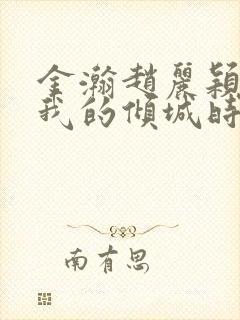 金瀚趙麗穎
我的傾城時
南有思